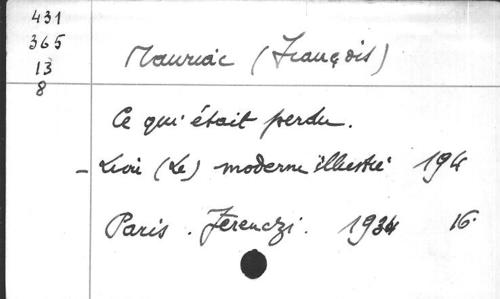 431
365
13
8
Mauriac (François)
Ce qui était perdu.
- Livre (Le) moderne illustré 194
Paris. Ferenczi. 1934 16.